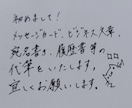 初めまして!
メッセージカード、ビジネス文章、
宛名書き、履歴書等の
代筆をいたします。
宜しくお願いします。